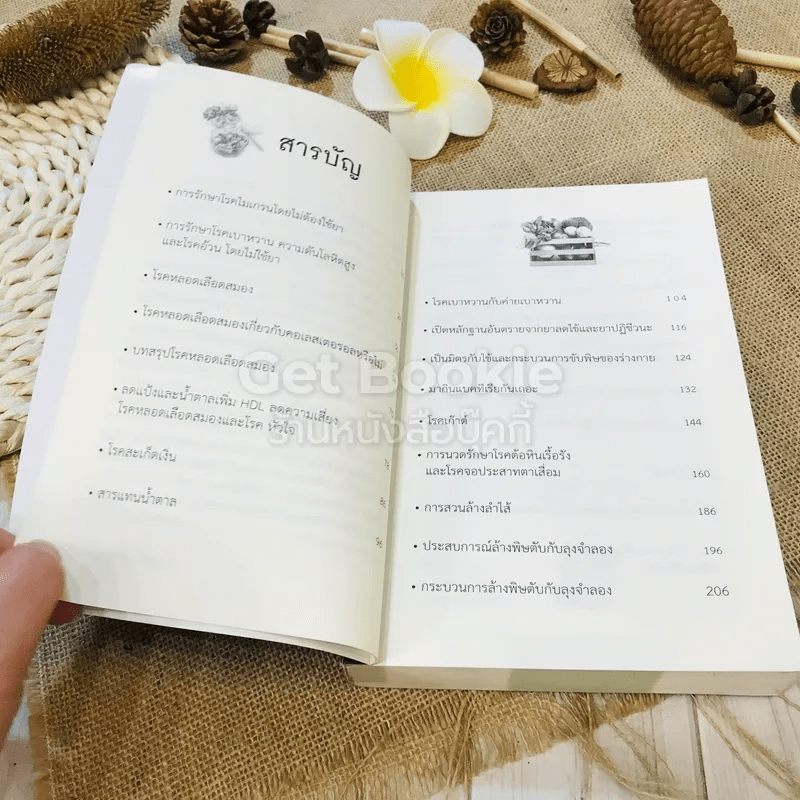 สารบัญ
• การรักษาโรคไมเกรนโดยไม่ต้องใช้ยา
• การรักษาโรคเบาหวาน ความดันโลหิตสูง
และโรคอ้วน โดยไม่ใช้ยา
• โรคหลอดเลือดสมอง
• โรคหลอดเลือดสมองเกี่ยวกับคอเลสเตอรอลหรือไม่
• บทสรุปโรคหลอดเลือดสมอง
• ลดแป้งและน้ำตาลเพิ่ม HDL ลดความเสี่ยง
โรคหลอดเลือดสมองและโรค หัวใจ
• โรคสะเก็ดเงิน
• สารแทนน้ำตาล
• โรคเบาหวานกับค่ายเบาหวาน 104
• เปิดหลักฐานอันตรายจากยาลดไข้และยาปฏิชีวนะ 116
• เป็นมิตรกับไข้และกระบวนการขับพิษของร่างกาย 124
• มากินแบคทีเรียกันเถอะ 132
• โรคเก๊าต์ 144
• การนวดรักษาโรคต้อหินเรื้อรัง
และโรคจอประสาทตาเสื่อม 160
• การสวนล้างลำไส้ 186
• ประสบการณ์ล้างพิษตับกับลุงจำลอง 196
• กระบวนการล้างพิษตับกับลุงจำลอง 206
Get Bookie
ร้านหนังสือบุ๊คกี้